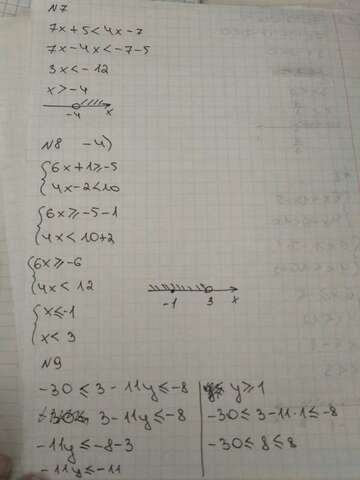 N7
7x+5<4x-7
7x-4x<-7-5
3x<-12
x>-4
-4 x
N8 -4)
{6x+1≥-5
4x-2<10
{6x≥-5-1
4x<10+2
{6x≥-6
4x<12
-1 3 x
{x≤-1
x<3
N9
-30≤3-11y≤-8
3-11y≤-8
-11y≤-8-3
-11y≤-11
y≥1
-30≤3-11·1≤-8
-30≤8≤8